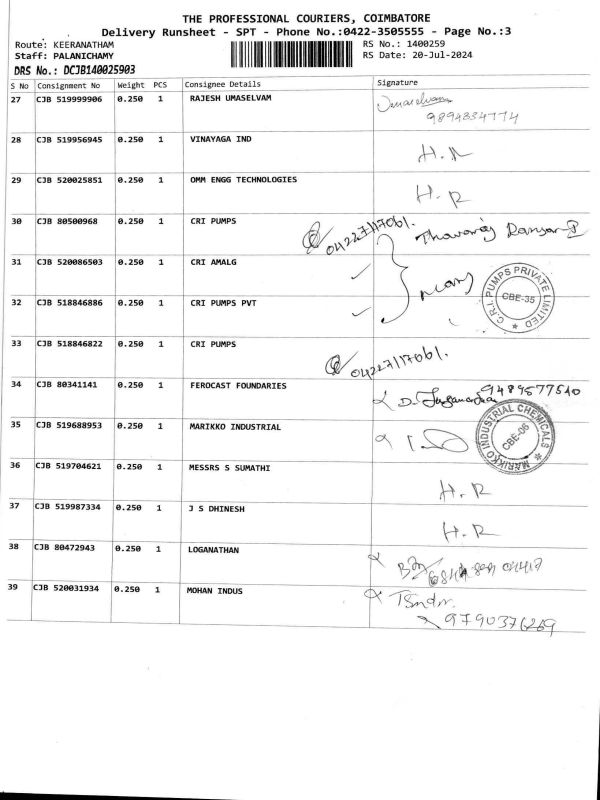 THE PROFESSIONAL COURIERS, COIMBATORE
Delivery Runsheet - SPT - Phone No.:0422-3505555 - Page No.:3
Route: KEERANATHAM RS No.: 1400259
Staff: PALANICHAMY RS Date: 20-Jul-2024
DRS No.: DCJB140025903
S No Consignment No Weight PCS Consignee Details Signature
27 CJB 519999906 0.250 1 RAJESH UMASELVAM
9894834774
28 CJB 519956945 0.250 1 VINAYAGA IND H.R
29 CJB 520025851 0.250 1 OMM ENGG TECHNOLOGIES H.R
30 CJB 80500968 0.250 1 CRI PUMPS 04227117061.
31 CJB 520086503 0.250 1 CRI AMALG
C.R.I. PUMPS PRIVATE LIMITED
CBE-35
32 CJB 518846886 0.250 1 CRI PUMPS PVT
33 CJB 518846822 0.250 1 CRI PUMPS 04227117061.
34 CJB 80341141 0.250 1 FEROCAST FOUNDARIES
35 CJB 519688953 0.250 1 MARIKKO INDUSTRIAL
MARIKKO INDUSTRIAL CHEMICALS
CBE-06
36 CJB 519704621 0.250 1 MESSRS S SUMATHI H.R
37 CJB 519987334 0.250 1 J S DHINESH H.R
38 CJB 80472943 0.250 1 LOGANATHAN
39 CJB 520031934 0.250 1 MOHAN INDUS